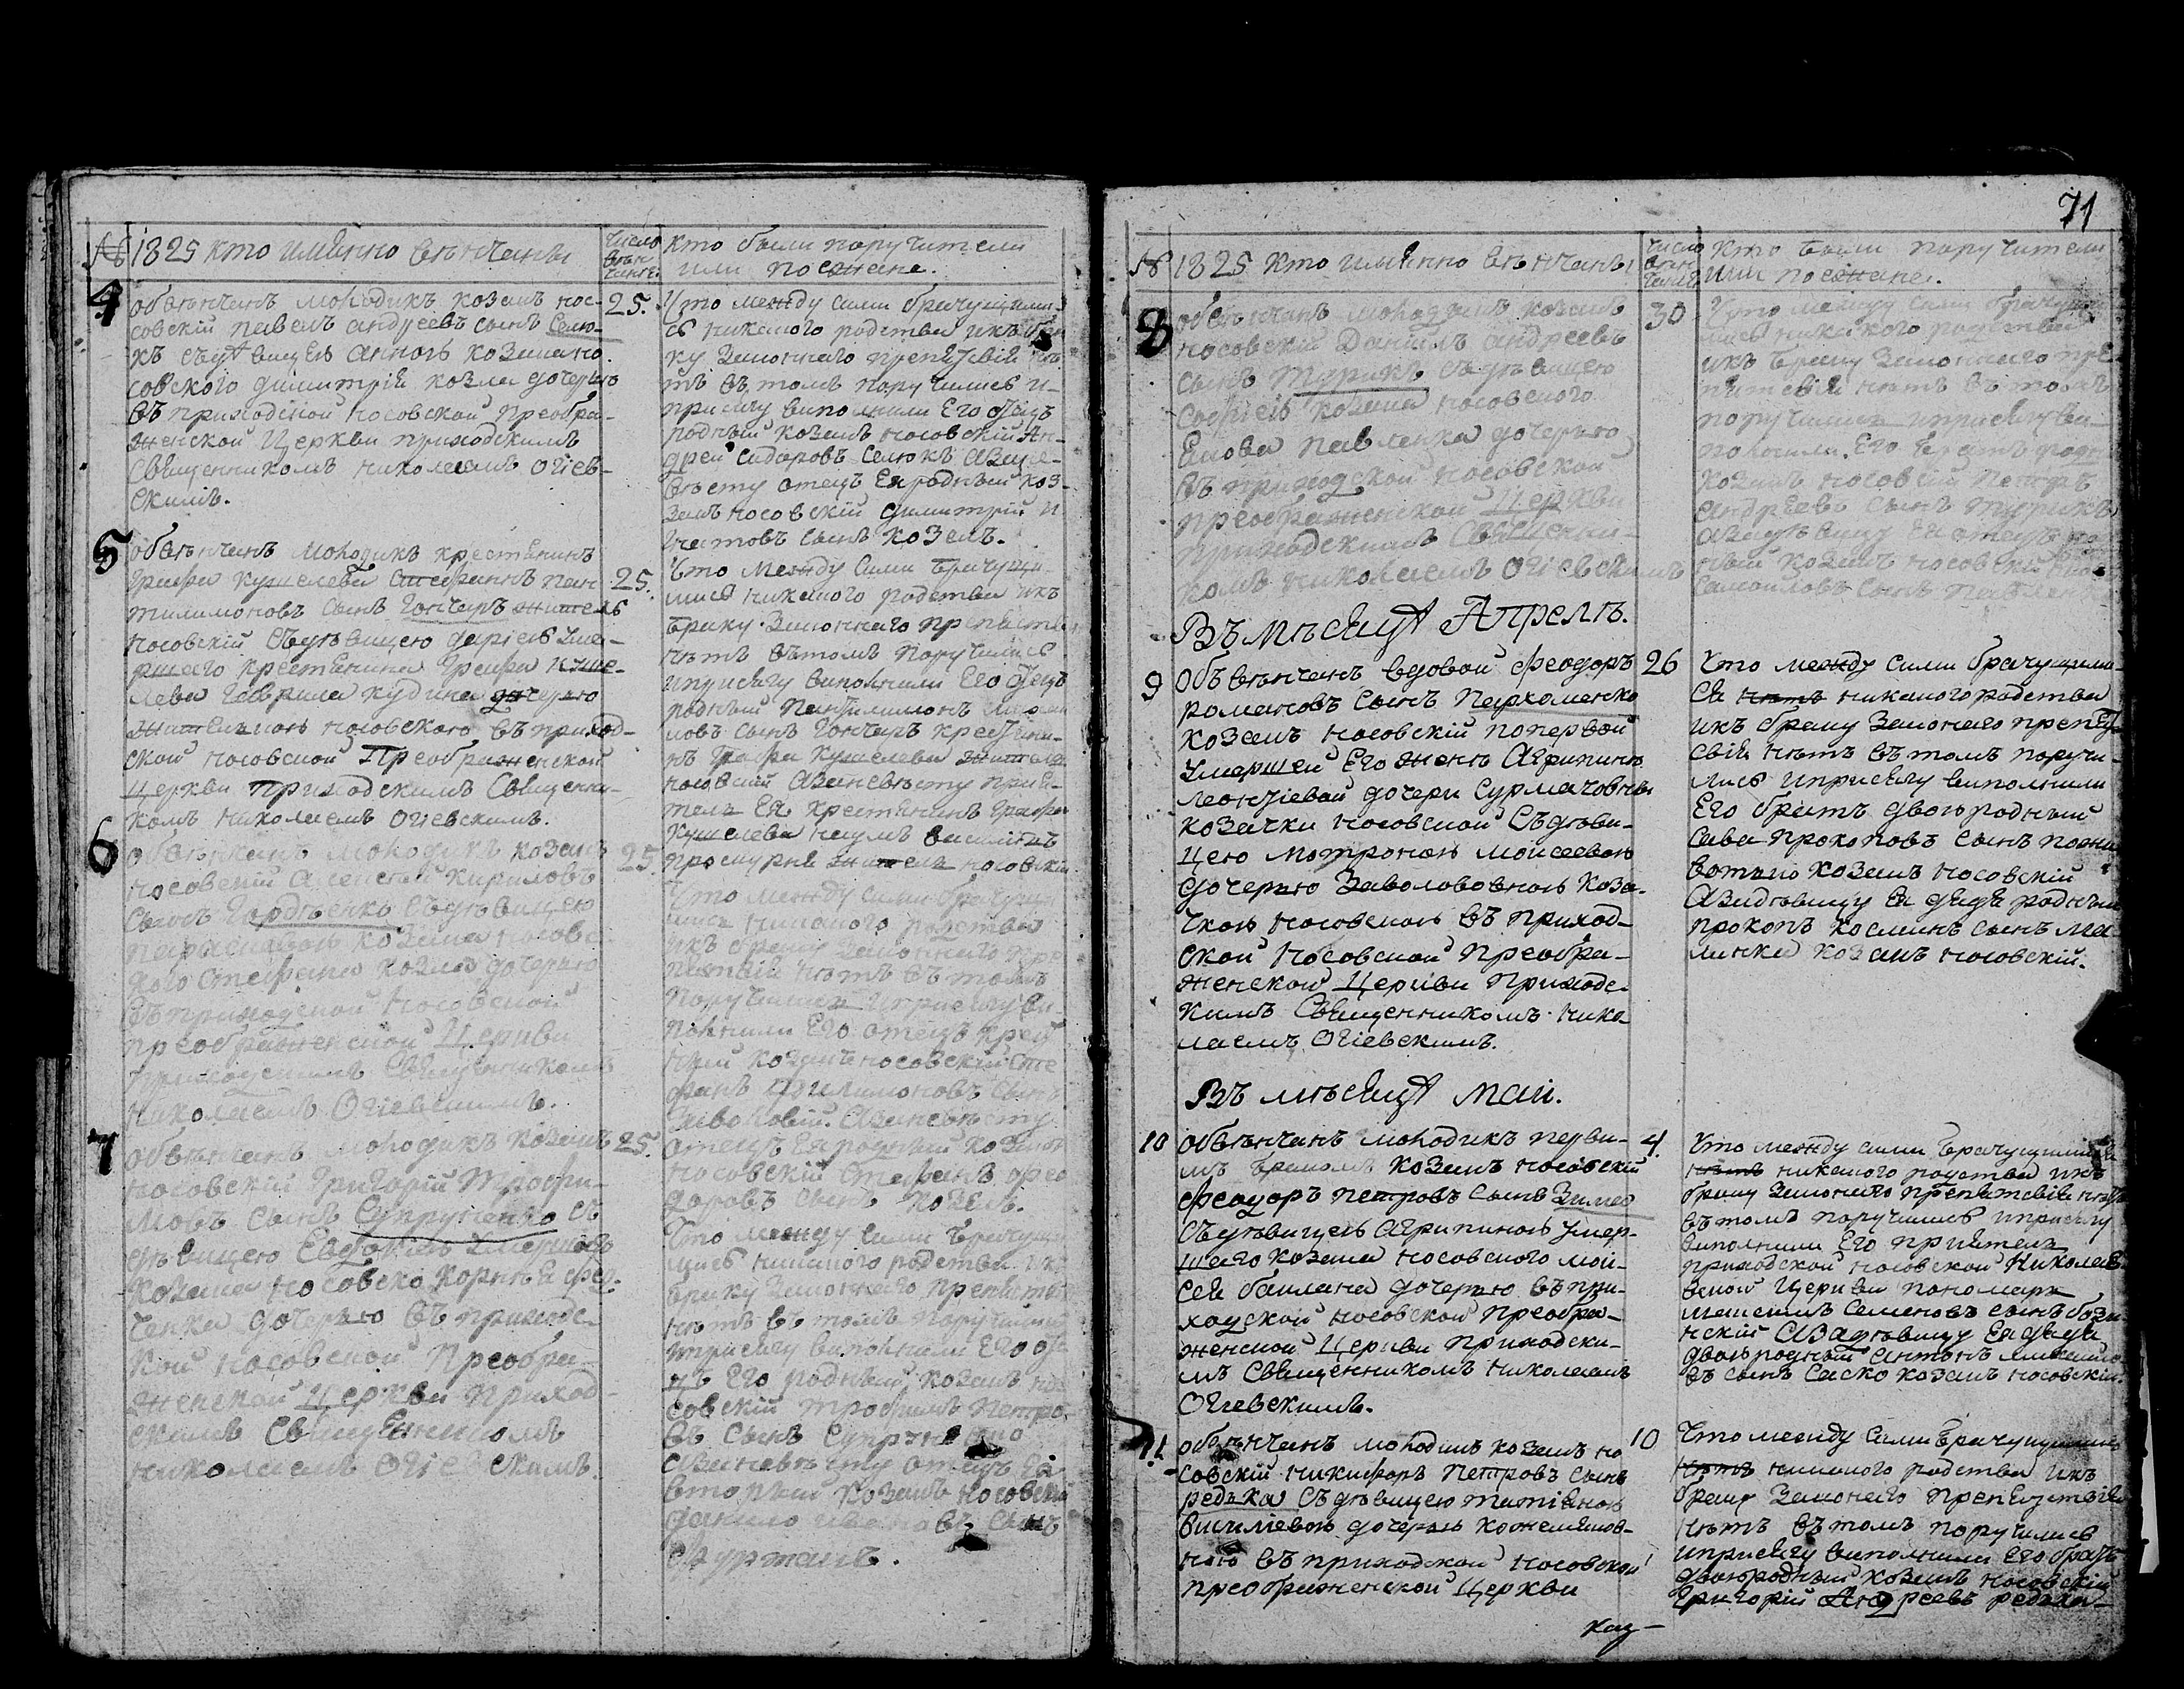 № 1825 кто имянно венчаны
Число венчания
кто были поручители
или поезжане.
4
обвенчанъ молодикъ козакъ нос-
совскій павелъ андреевъ сынъ Селю-
къ съ девицею анною козака но-
совского димитрія козла дочерью
въ приходской носовской преобра-
женской Церкви приходскимъ
Священникомъ николаемъ огіев-
скимъ.
25.
Что между сими брачущими-
сь никакого родства и къ бра-
ку законного препятствія не-
тъ въ томъ поручились и
присягу виполнили его отецъ
родный козакъ носовскій Ан-
дрей сидоровъ Селюкъ а за не-
весту отецъ Ея родный коз-
закъ носовскій димитрій и
натовъ сынъ козелъ.
5
обвенчанъ молодикъ крестянинъ
Графа кушелева Стефанъ пан-
тилимоновъ сынъ Гончаръ житель
носовскій съ девицею даріею уме-
ршего крестянина Графа куше-
лева Гаврила кудина дочерью
жителькою носовскою въ приход-
ской носовской Преображенской
Церкви приходскимъ Священни-
комъ николаемъ огіевскимъ.
25.
Что между сими брачущи-
мись никакого родства и къ
браку законнаго препятств
нетъ въ томъ поручились
и присягу виполнили Его отецъ
родный Пантилимонъ
новъ сынъ Гончаръ крестяни-
нъ Графа кушелева житель
носовскій а за невесту прія-
тель Ея крестянинъ Графа
кушелева наумъ василіевъ
проскурня житель носовскій
6
обвенчанъ молодикъ козакъ
носовскій алексей кириловъ
сынъ Гордіенко съ девицею
параскевою козака носовс-
кого Стефана козла дочерью
въ приходской носовской
преображенской Церкви
приходскимъ Священникомъ
николаемъ огіевскимъ.
25.
Что между сими брачущи
мись никакого родства
и къ браку законнаго пре
пятствія нетъ въ томъ
поручились и присягу ви-
полнили Его отецъ крест
ный козакъ носовскій Сте
фанъ филимоновъ сынъ
а за невесту
отецъ Ея родный козакъ
носовскій Стефанъ фео
доровъ сынъ козелъ.
7
обвенчанъ молодикъ козакъ
носовскій Григорій Трофи-
мовъ сынъ Супруненко съ
девицею Евдокіею умершого
козака носовско корнея фед-
ченка дочерью въ приходс-
кой носовской Преобра-
женской Церкви приход-
скимъ Священникомъ
николаемъ огіевскимъ.
25.
Что между сими брачущи
мись никакого родства и къ
браку законнаго препятств
нетъ въ томъ поручились
и присягу виполнили Его от
цъ Его родный козакъ но
совскій трофимъ Петро-
въ сынъ Супруненко
а за невесту отецъ Ея
вторый козакъ носовскій
данило ивановъ сынъ
71
№ 1825 кто имянно венчаны
Число венчания
кто были поручители
или поезжане.
8
обвенчанъ молодикъ козакъ
носовскій Даніилъ андреевъ
сынъ Турикъ съ девицею
Софіею козака носовского
Павленка дочерью
въ приходской носовской
преображенской Церкви
приходскимъ Священни-
комъ николаемъ огіевскимъ
30
Что между сими брачущи
мись никакого родства
и къ браку законнаго пре-
пятствія нетъ въ томъ
поручились и присягу ви-
полнили. Его братъ родн
козакъ носовскій Петръ
андреевъ сынъ турикъ
а за девицу Ея отецъ ро
ный козакъ носовскій
самойловъ сынъ павленко
Въ месяце Апреле.
9
Объвенчанъ вдовой феодоръ
романовъ сынъ Пархоменко
козакъ носовскій по первой
умершей Его жене Агрипине
леонтіевой дочери Сурмачовны
козачки носовской Съ деви-
цею мотроною моисеевою
дочерью Заволововною коза-
чкою носовскою въ приход-
ской носовской преобра-
женской Церкви приходс-
кимъ Священникомъ нико-
лаемъ огіевскимъ.
26
Что между сими брачущими-
ся нетъ никакого родства
и къ браку законнаго препят-
ствія нетъ въ томъ поручи-
лись и присягу виполнили
Его братъ двоюродный
Сава прокоповъ сынъ
козакъ носовскій
а за девицу Ея дядя родный
прокопъ косминъ сынъ ма-
линка козакъ носовскій.
Въ месяце маи.
10
обвенчанъ молодикъ перви-
мъ бракомъ козакъ носовскій
феодоръ петровъ сынъ Зима
съ девицею агрипиною умер-
шаго козака носовского мои-
сея баклана дочерью въ при-
ходской носовской Преобра-
женской Церкви Приходски-
мъ Священникомъ николаемъ
огіевскимъ.
4.
Что между сими брачущимися
нетъ никакого родства и къ
браку законнаго препятствія нетъ
въ томъ поручились и присягу
виполнили Его пріятель
приходской носовской Николаев
ской Церкви пономарь
Семеновъ сынъ
а за девицу Ея дядя
двоюродный антонъ
въ сынъ Саско козакъ носовскій
11
обвенчанъ молодикъ козакъ но
совскій никифоръ Петровъ сынъ
редька съ девицею татіяною
василіевою дочерью кожемяков-
ною въ приходской носовской
преображенской Церкви
10
Что между сими брачущимись
нетъ никакого родства и къ
браку законнаго препятствія
нетъ въ томъ поручились
и присягу виполнили Его братъ
двоюродный козакъ носовскій
Григорій Андреевъ редька